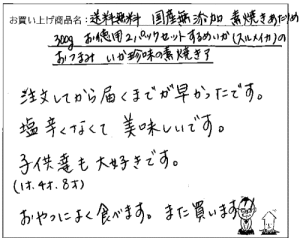 お買い上げ商品名:送料無料 国産無添加 素焼きあたりめ
300g お徳用2パックセットするめいか(スルメイカ)の
おつまみ いか珍味の素焼きア
注文してから届くまでが早かったです。
塩辛くなくて 美味しいです。
子供達も大好きです。
(1才.4才.8才)
おやつによく食べます。また買います